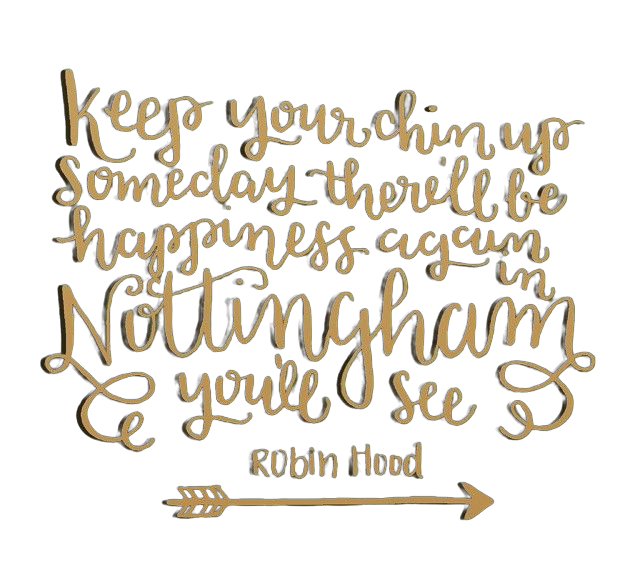 Keep your chin up
someday there'll be
happiness again
in
Nottingham
you'll see
Robin Hood